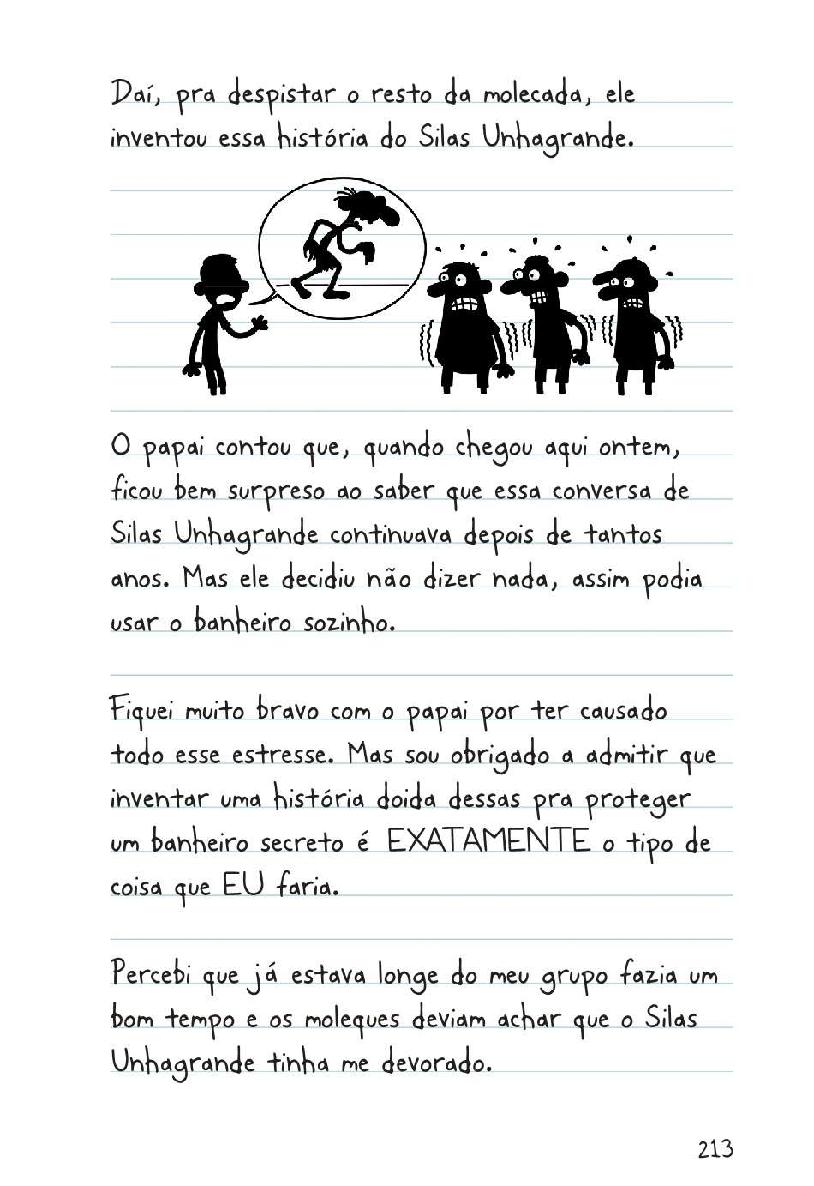 Daí, pra despistar o resto da molecada, ele
inventou essa história do Silas Unhagrande.
O papai contou que, quando chegou aqui ontem,
ficou bem surpreso ao saber que essa conversa de
Silas Unhagrande continuava depois de tantos
anos. Mas ele decidiu não dizer nada, assim podia
usar o banheiro sozinho.
Fiquei muito bravo com o papai por ter causado
todo esse estresse. Mas sou obrigado a admitir que
inventar uma história doida dessas pra proteger
um banheiro secreto é EXATAMENTE o tipo de
coisa que EU faria.
Percebi que já estava longe do meu grupo fazia um
bom tempo e os moleques deviam achar que o Silas
Unhagrande tinha me devorado.
213